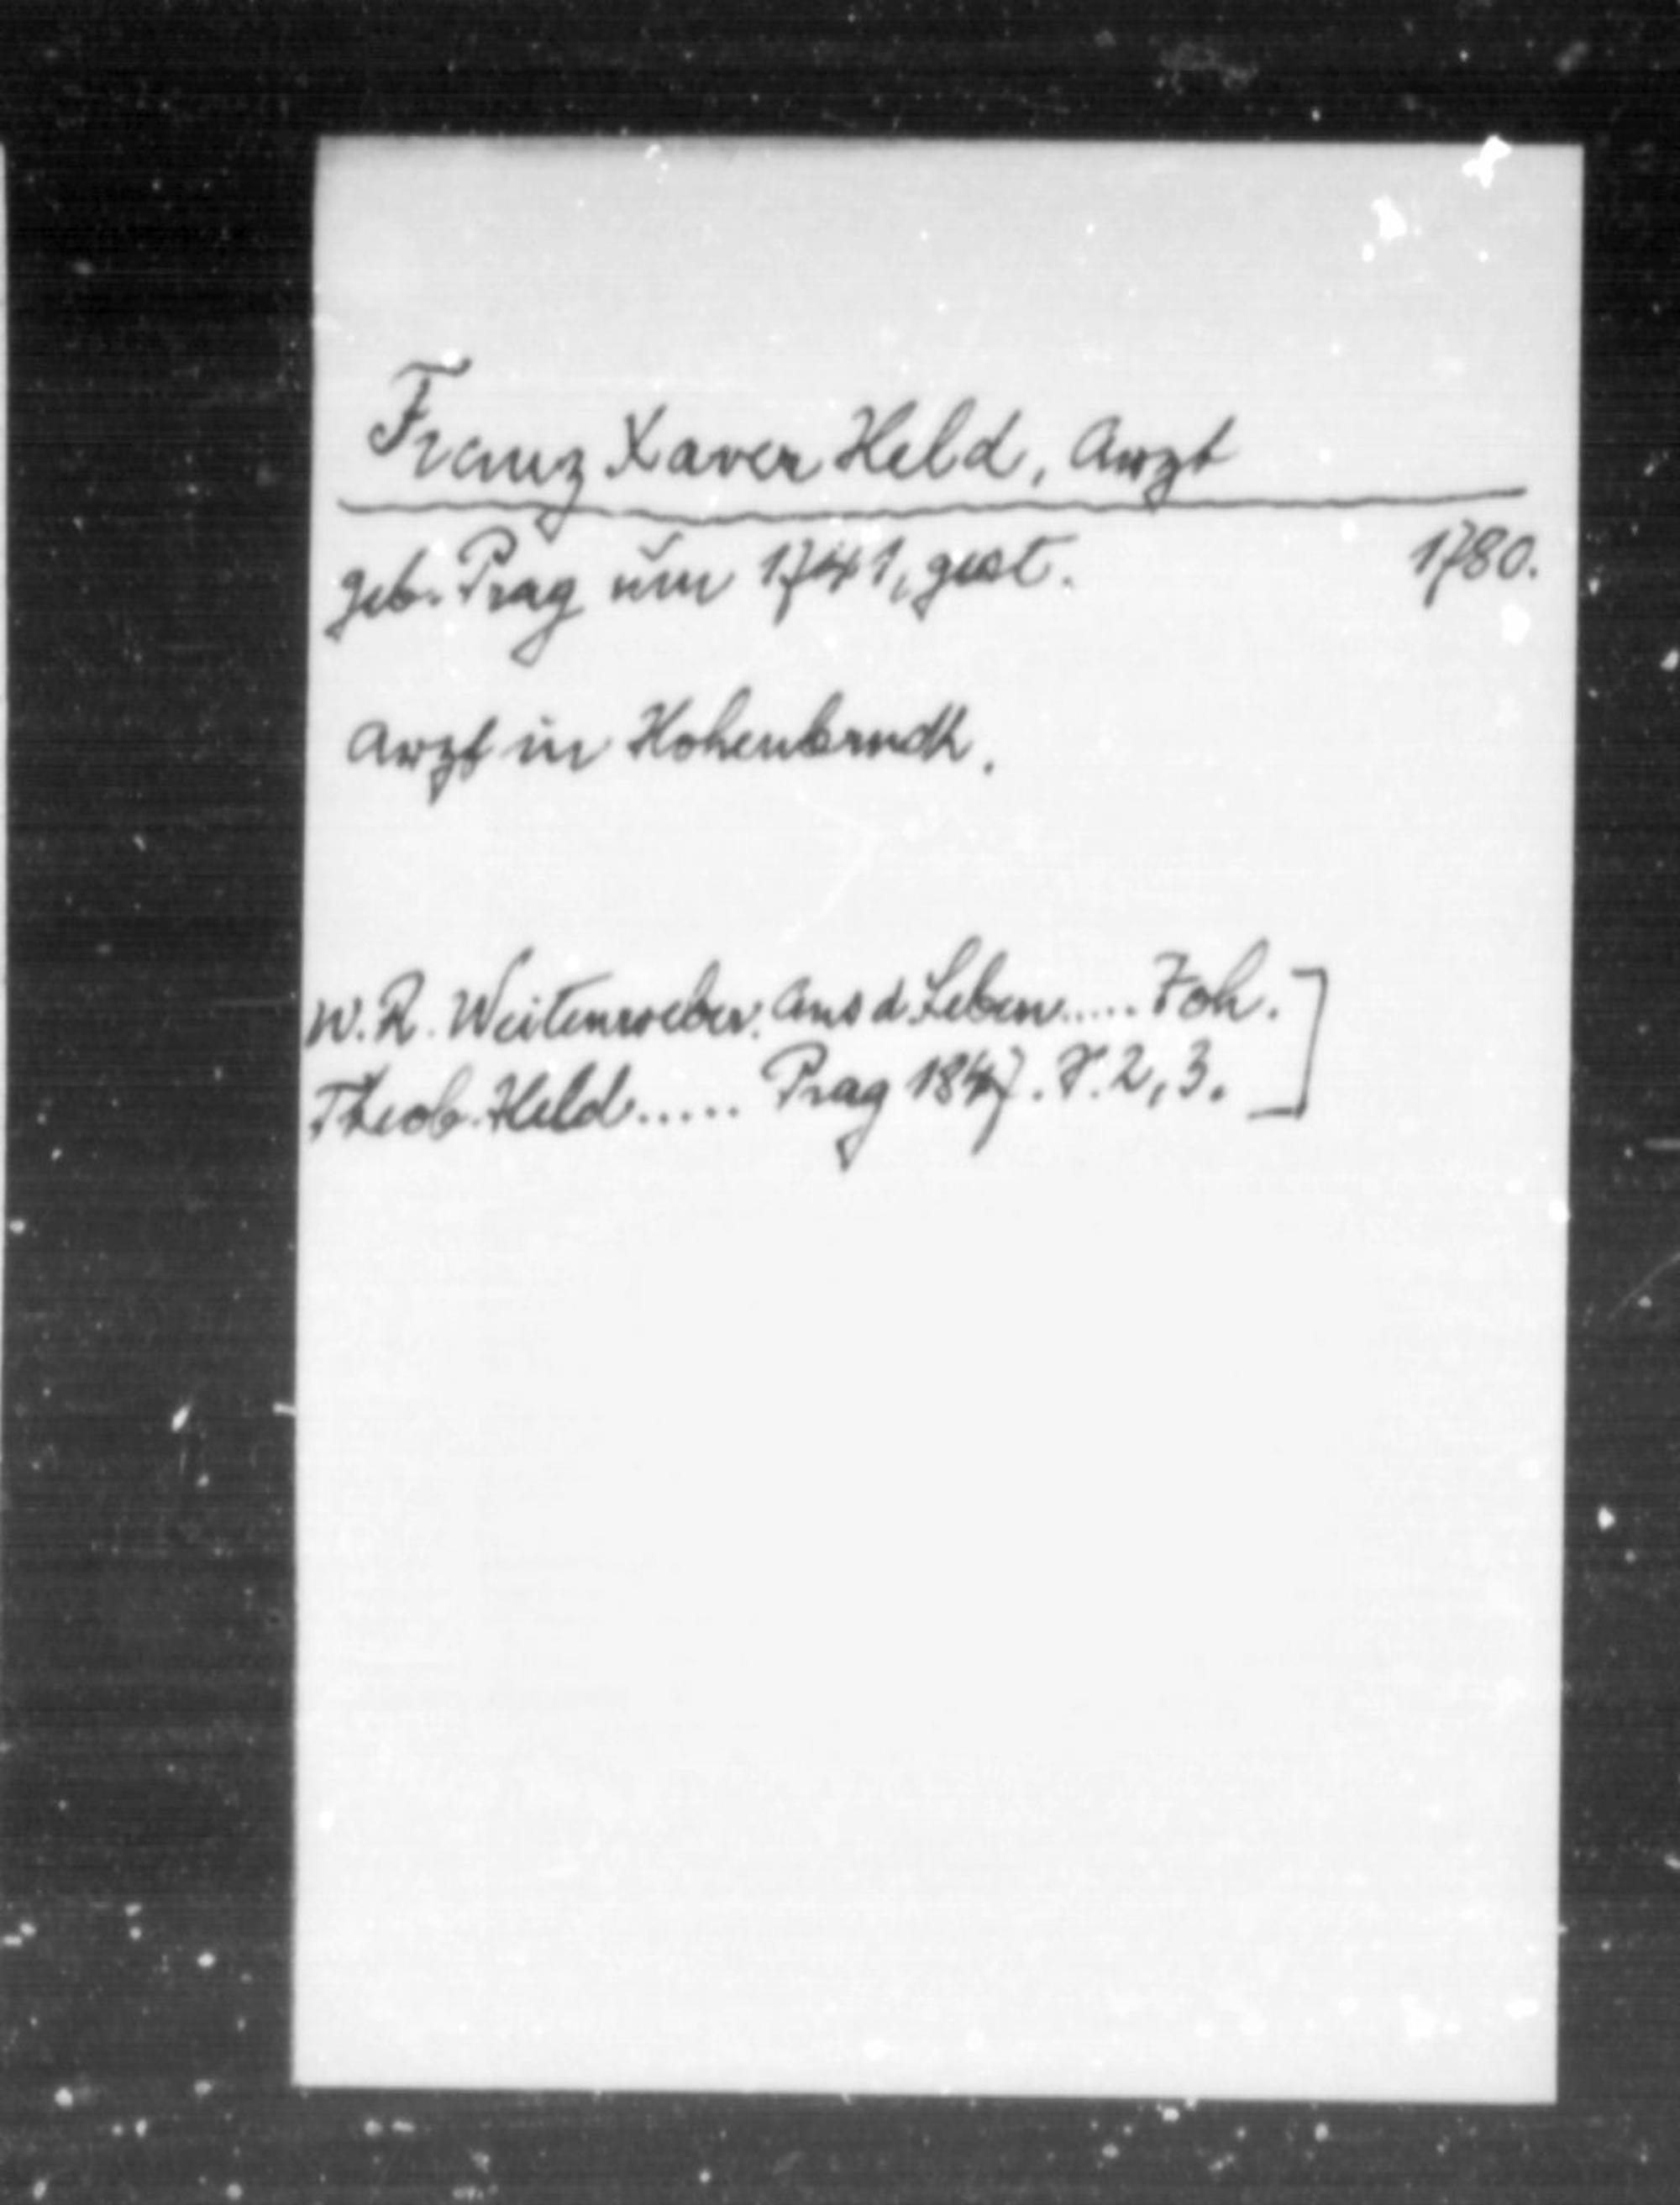 Franz Xaver Held, Arzt
geb. Prag um 1741, gest. 1780.
Arzt in Hohenbruck.
W. R. Weitenweber. Aus d. Leben..... Joh.
Theob. Held..... Prag 1847. S. 2, 3.]